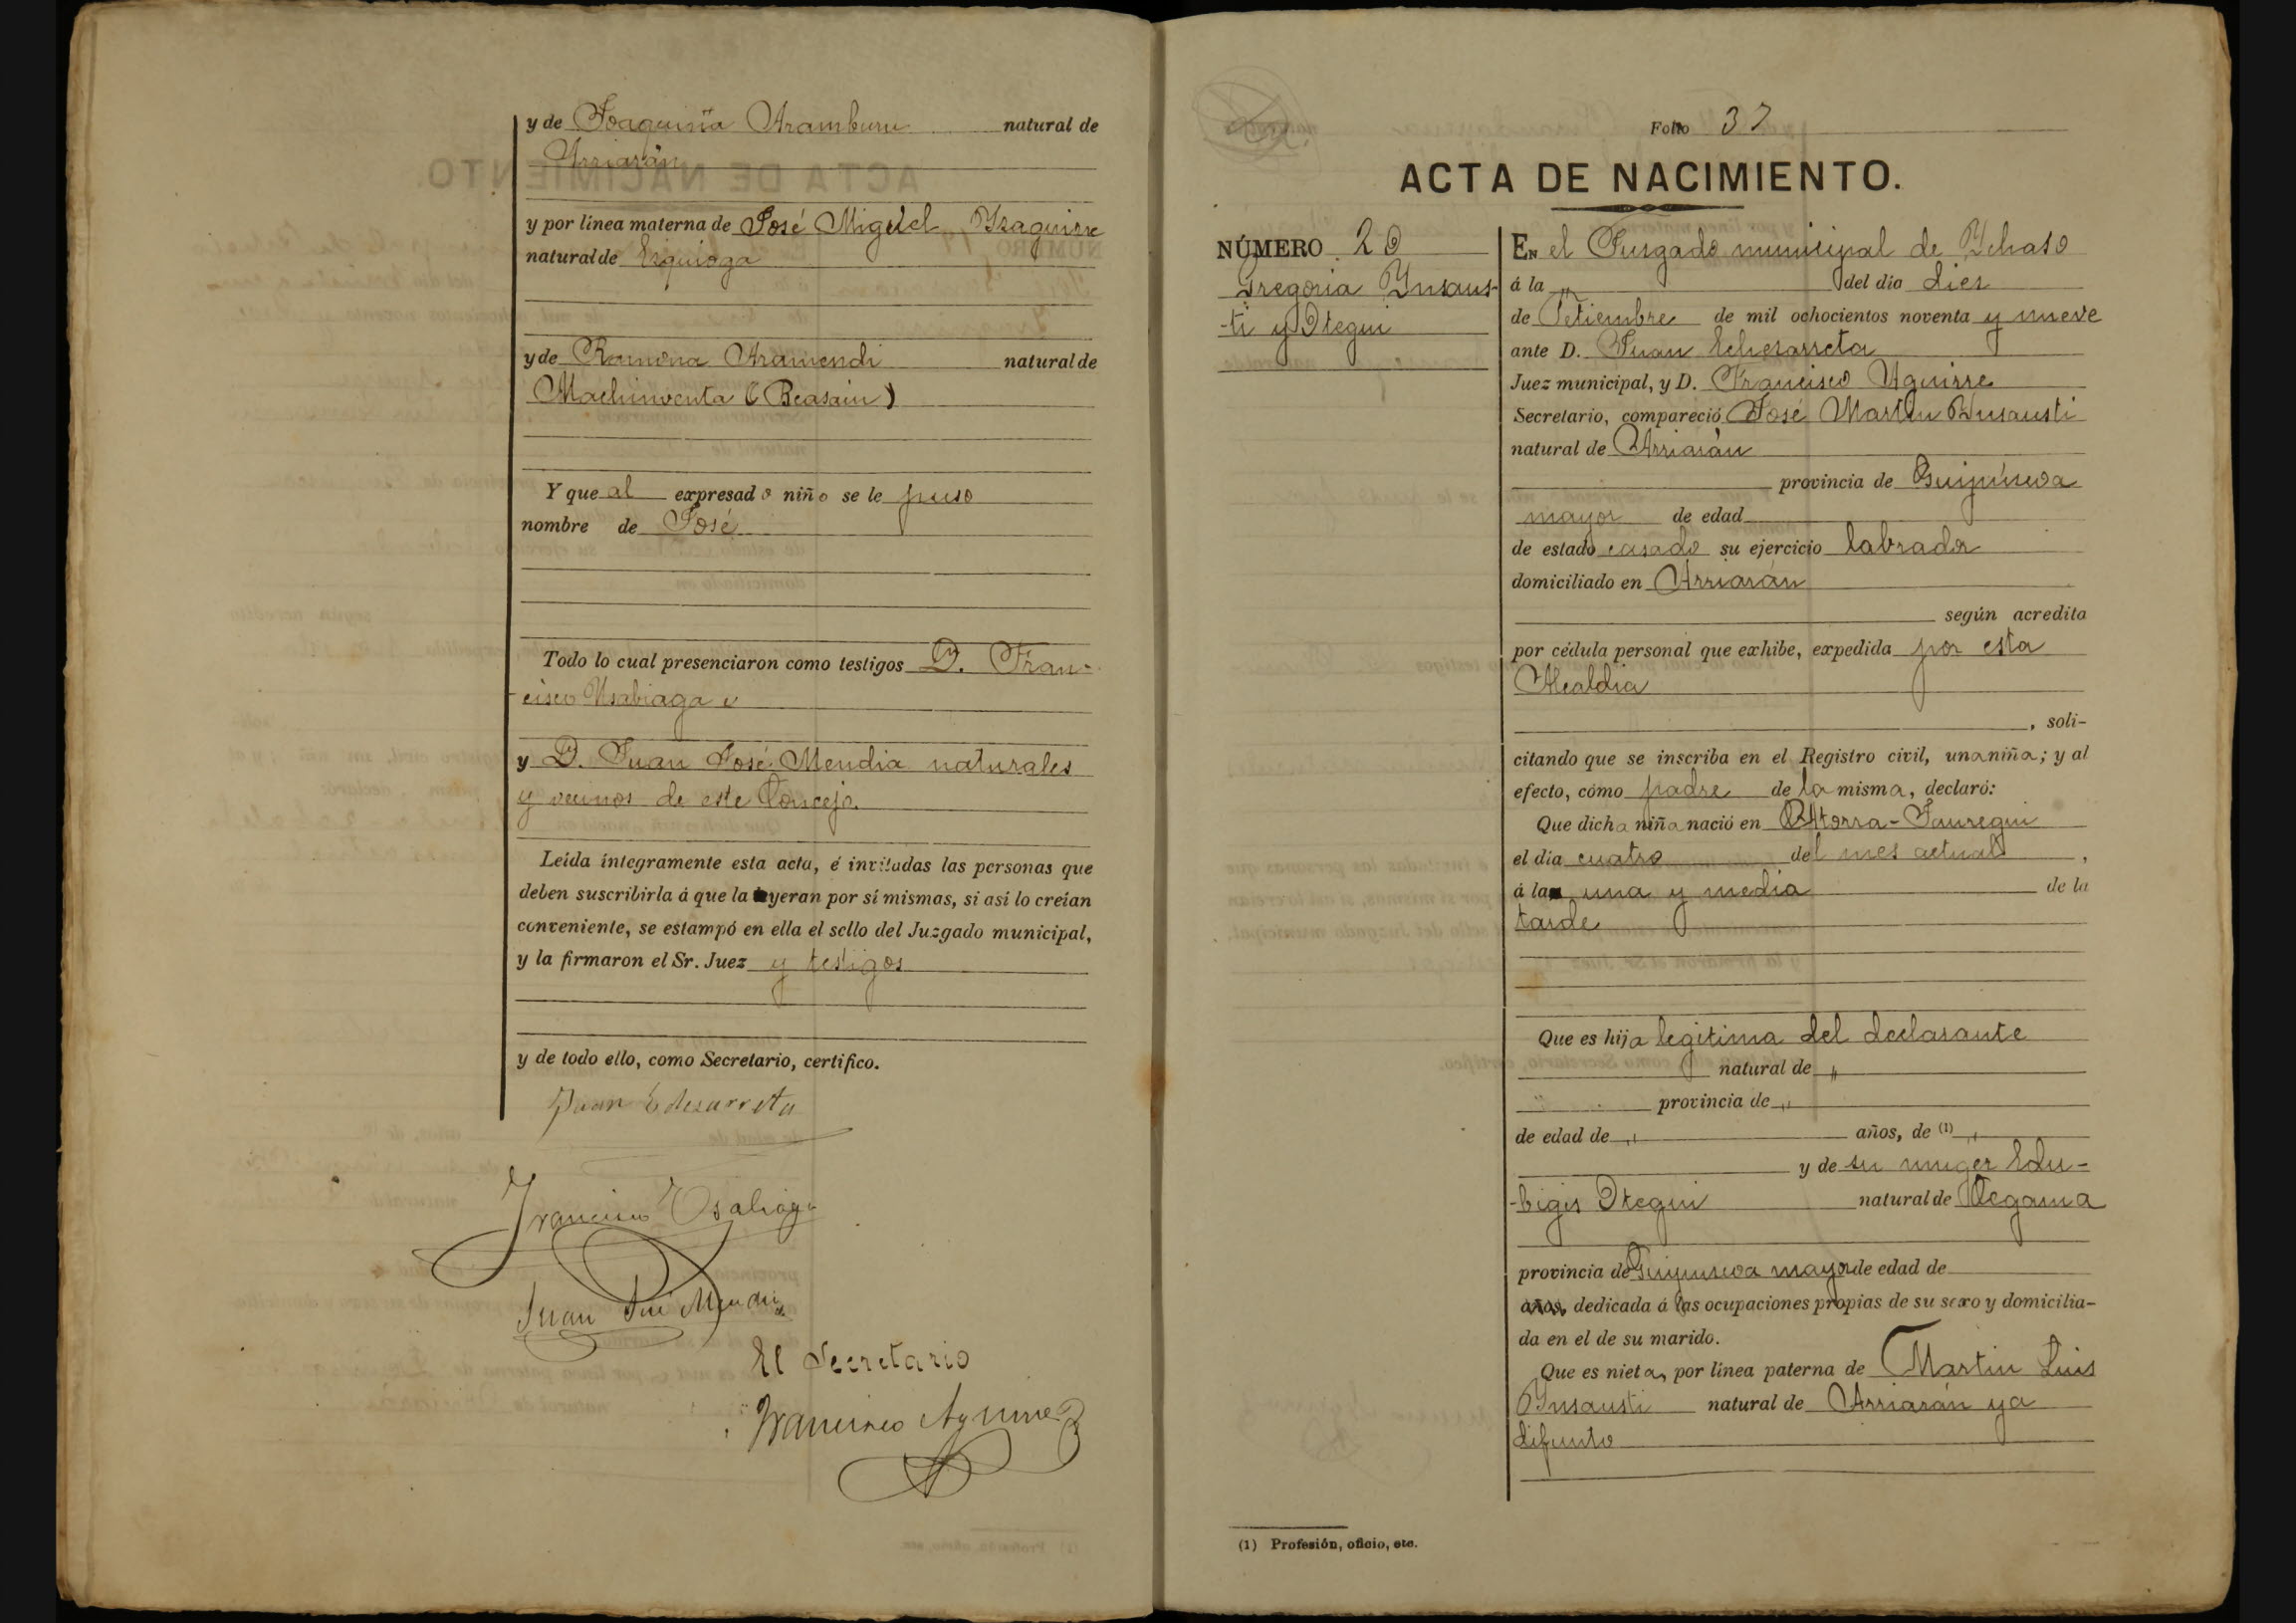 y de Joaquina Aramburu natural de
Arriarán
y por línea materna de José Miguel Yzaguirre
natural de Ezquioga
y de Ramona Aramendi natural de
Machinventa (Beasain)
Y que al expresado niño se le puso
nombre de José
Todo lo cual presenciaron como testigos D. Fran-
cisco Usabiaga
y D. Juan José Mendia naturales
y vecinos de este Concejo
Leída íntegramente esta acta, é invitadas las personas que
deben suscribirla á que la leyeran por sí mismas, si así lo creían
conveniente, se estampó en ella el sello del Juzgado municipal,
y la firmaron el Sr. Juez y testigos
y de todo ello, como Secretario, certifico.
Juan Echezarreta
Francisco Usabiaga
Juan José Mendia
El Secretario
Francisco Aguirre
Folio 37
ACTA DE NACIMIENTO.
NÚMERO 20
Gregoria Ynsaus-
-ti y Otegui
EN el Jusgado municipal de Ychaso
á la " del dia dies
de Setiembre de mil ochocientos noventa y nueve
ante D. Juan Echezarreta
Juez municipal, y D. Francisco Aguirre
Secretario, compareció José Martin Ynsausti
natural de Arriarán
provincia de Guipúzcoa
mayor de edad
de estado casado su ejercicio labrador
domiciliado en Arriarán
según acredita
por cédula personal que exhibe, expedida por esta
Alcaldia
, soli-
citando que se inscriba en el Registro civil, una niña; y al
efecto, como padre de la misma, declaró:
Que dicha niña nació en Atorra-Jauregui
el dia cuatro del mes actual,
á la una y media de la
tarde
Que es hija legitima del declarante
natural de "
" provincia de "
de edad de " años, de (1) "
y de su muger Edu-
-bigis Otegui natural de Cegama
provincia de Guipuzcoa mayor de edad de
años, dedicada á las ocupaciones propias de su sexo y domicilia-
da en el de su marido.
Que es nieta, por línea paterna de Martin Luis
Ynsausti natural de Arriarán ya
difunto
(1) Profesión, oficio, etc.